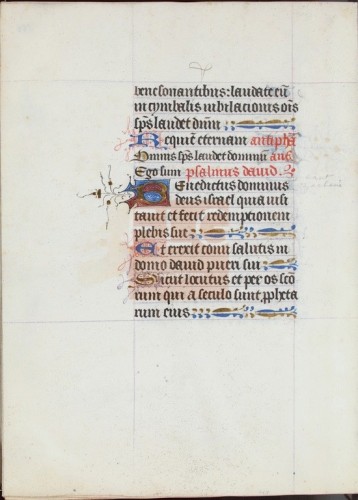 bene sonantibus: laudate eũ
in cymbalis iubilacionis oĩs
sp̃s laudet dñm
Requiẽ eternam antipha
Omnis sp̃s laudet dominũ ant
Ego sum psalmus david.
Benedictus dominus
deus israel quia uisi
tauit et fecit redempcionem
plebis sue
Et erexit cornu salutis in
domo dauid pueri sui
Sicut locutus est per os sco
rum qui a seculo sunt ꝓpheta
rum eius